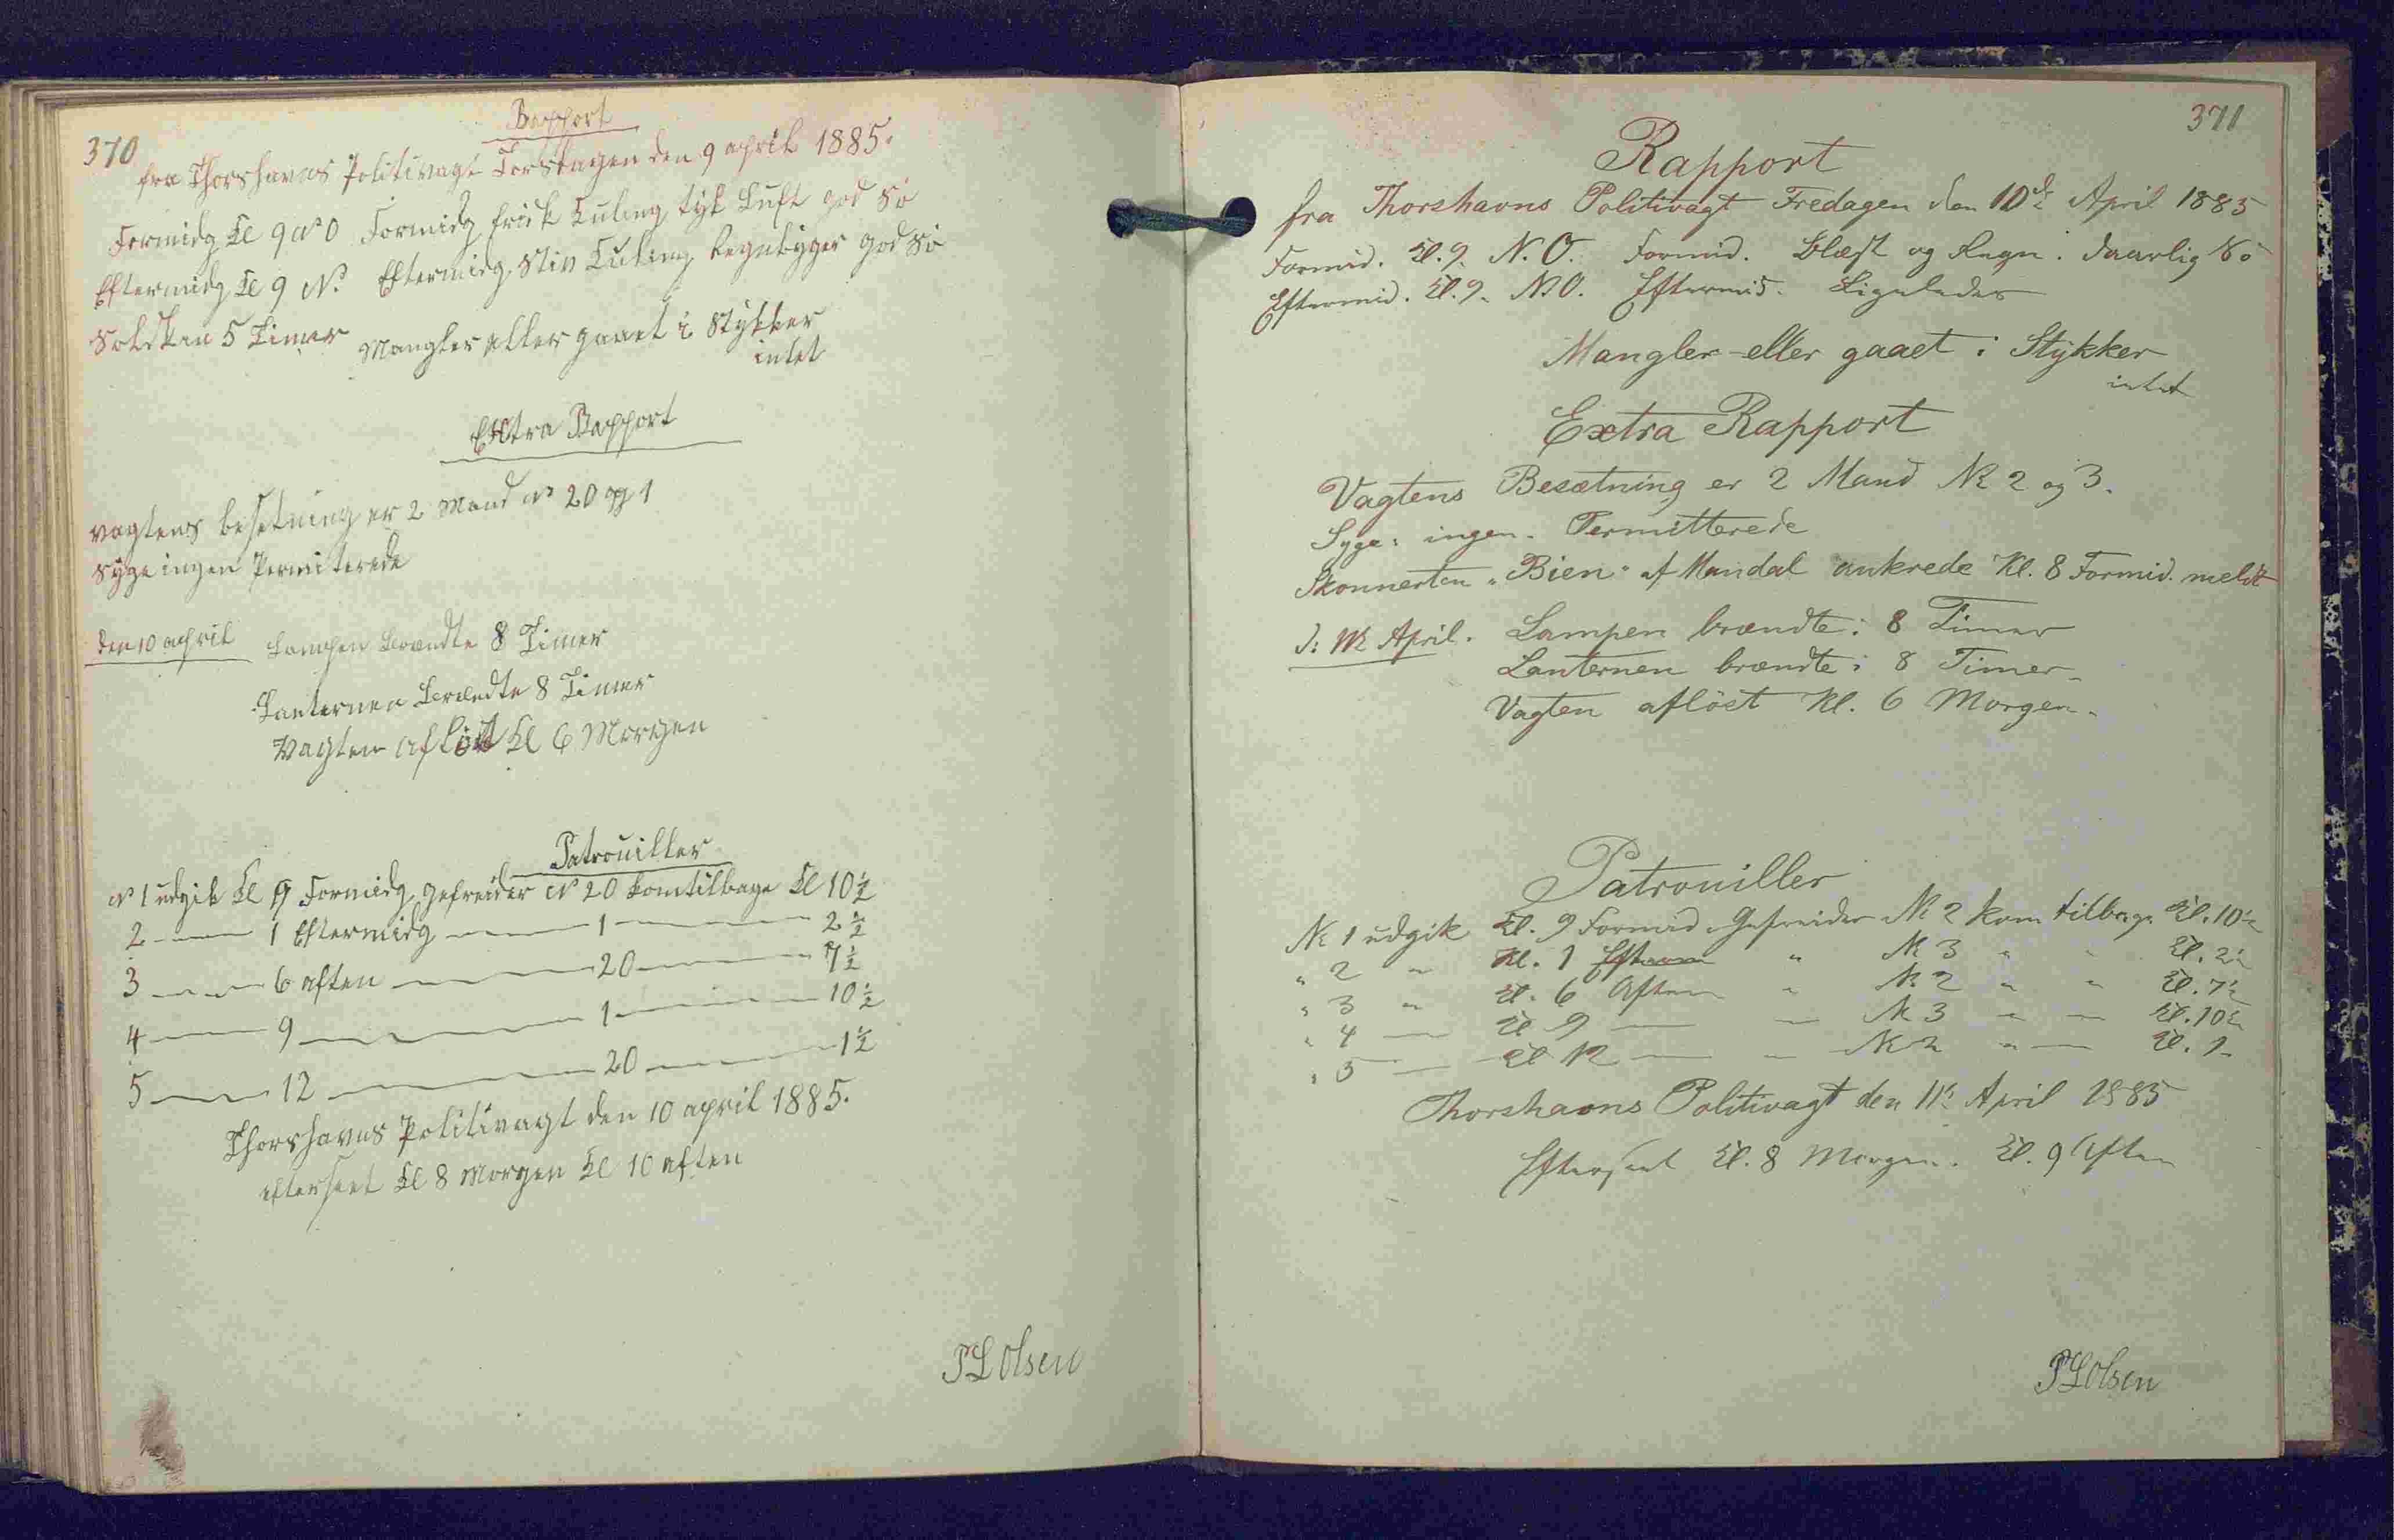 370
Rapport
fra Thorshavns Politivagt Torsdagen den 9 april 1885.
Formidg Kl 9 N O Formidg frisk Kuling tyk Luft god Sö
Eftermidg Kl 9 N. Eftermidg. Stiv Kuling Regnbyger god Sö
Solskin 5 Timer Mangler eller gaaet i Stykker
intet
Extra Rapport
vagtens besetning er 2 Mand No 20 og 1
syge ingen Permiterede
den 10 april Lampen Brændte 8 Timer
Lanternen Brændte 8 Timer
Vagten aflöst Kl 6 Morgen
Patrouiller
No 1 udgik Kl 9 Formidg gefreider No 20 kom tilbage Kl 10½
2 — 1 Eftermidg — 1 — 2½
3 — 6 aften — 20 — 7½
4 — 9 — 1 — 10½
5 — 12 — 20 — 1½
Thorshavns Politivagt den 10 april 1885.
efterseet Kl 8 Morgen Kl 10 aften
PL Olsen
371
Rapport
fra Thorshavns Politivagt Fredagen den 10d: April 1885
Formid. Kl. 9. N.O. Formid. Blæst og Regn. daarlig Sö
Eftermid. Kl. 9. N.O. Eftermid. Ligeledes
Mangler eller gaaet i Stykker
intet
Extra Rapport
Vagtens Besætning er 2 Mand No 2 og 3.
Syge: ingen. Permitterede
Skonnerten "Bien" af Mandal ankrede Kl. 8 Formid. meldt
April. Lampen brændte: 8 Timer
Lanternen brændte: 8 Timer.
Vagten aflöst Kl. 6 Morgen.
Patrouiller
No 1 udgik Kl. 9 Formid. Gefreider No 2 kom tilbage Kl. 10½
" 2 " Kl. 1 Efterm " No 3 " " Kl. 2½
" 3 " Kl. 6 Aften " No 2 " " Kl. 7½
" 4 — Kl 9 — — No 3 " — Kl. 10½
" 5 — Kl 12 — — No 2 " — Kl. 1
Thorshavns Politivagt den 11t: April 1885
Efterseet Kl. 8 Morgen. Kl. 9 Aften
PL Olsen